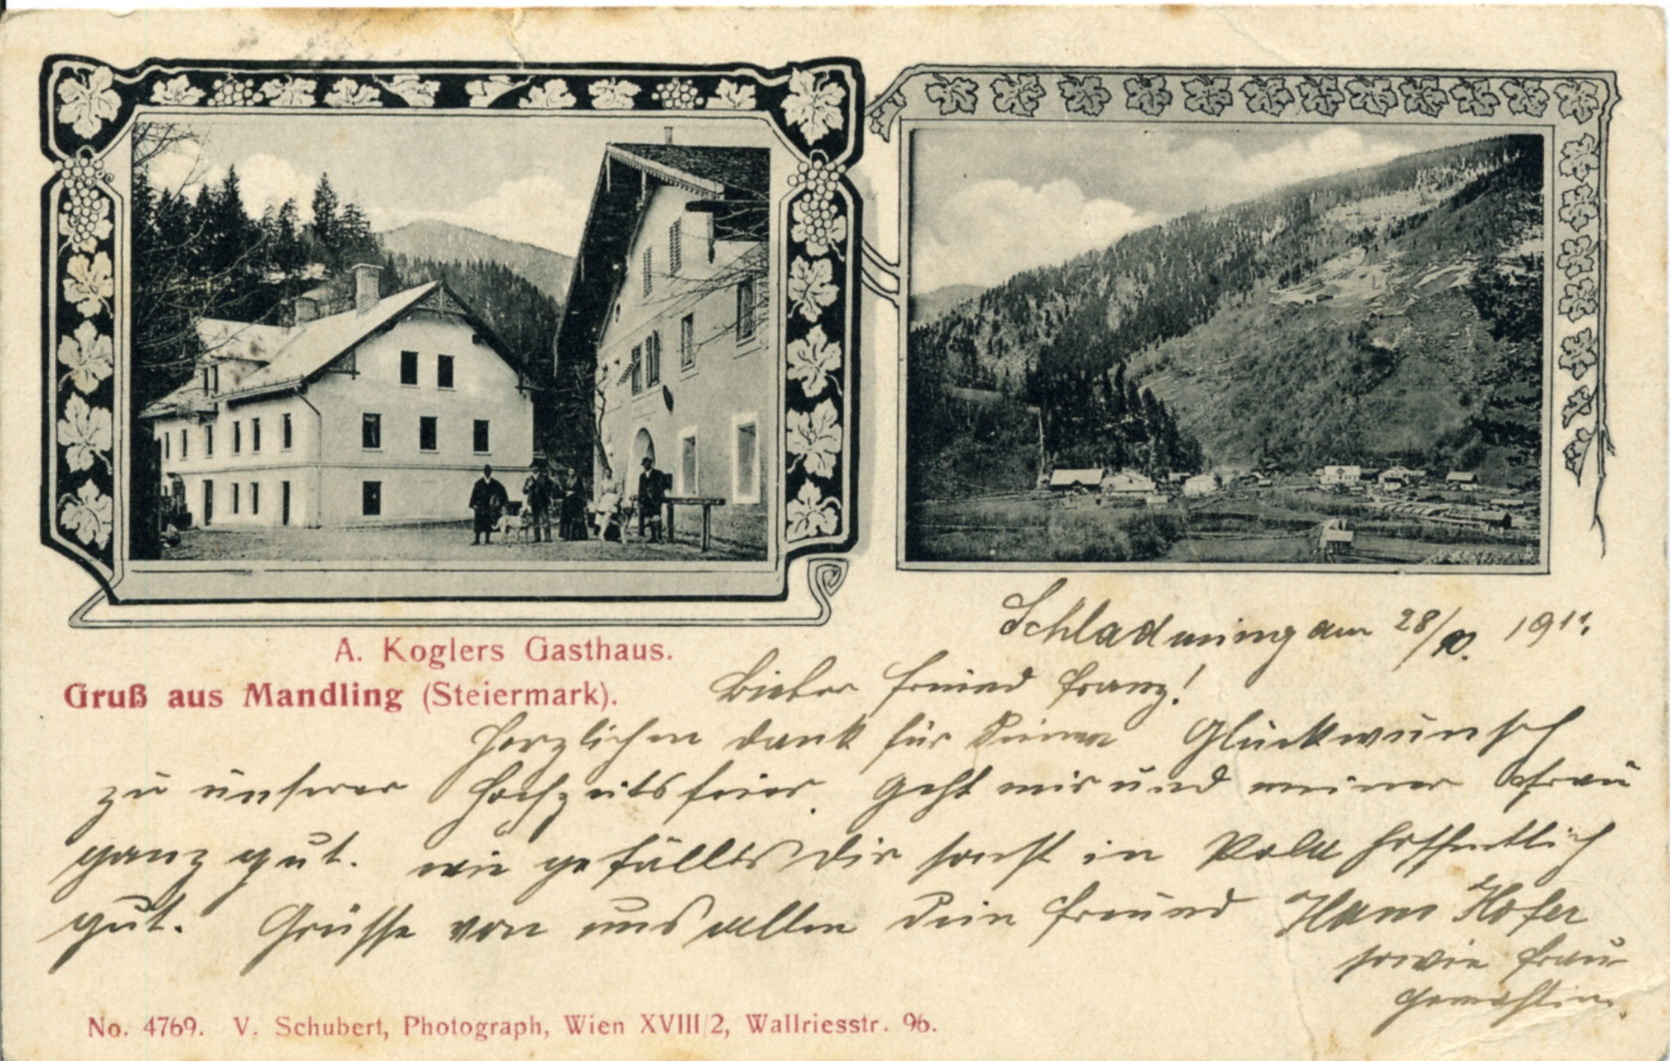 A. Koglers Gasthaus.
Gruß aus Mandling (Steiermark).
Schladming am 28/10. 1911.
Lieber Freund Franz!
Herzlichen Dank für Deinen Glückwunsch
zu unserer Hochzeitsfeier. Geht mir und meiner Frau
ganz gut. wie gefällts Dir sonst in Pola hoffentlich
gut. Grüsse von uns allen Dein Freund Hans Hofer
sowie Frau
Gemahlin.
No. 4769. V. Schubert, Photograph, Wien XVIII/2, Wallriesstr. 96.